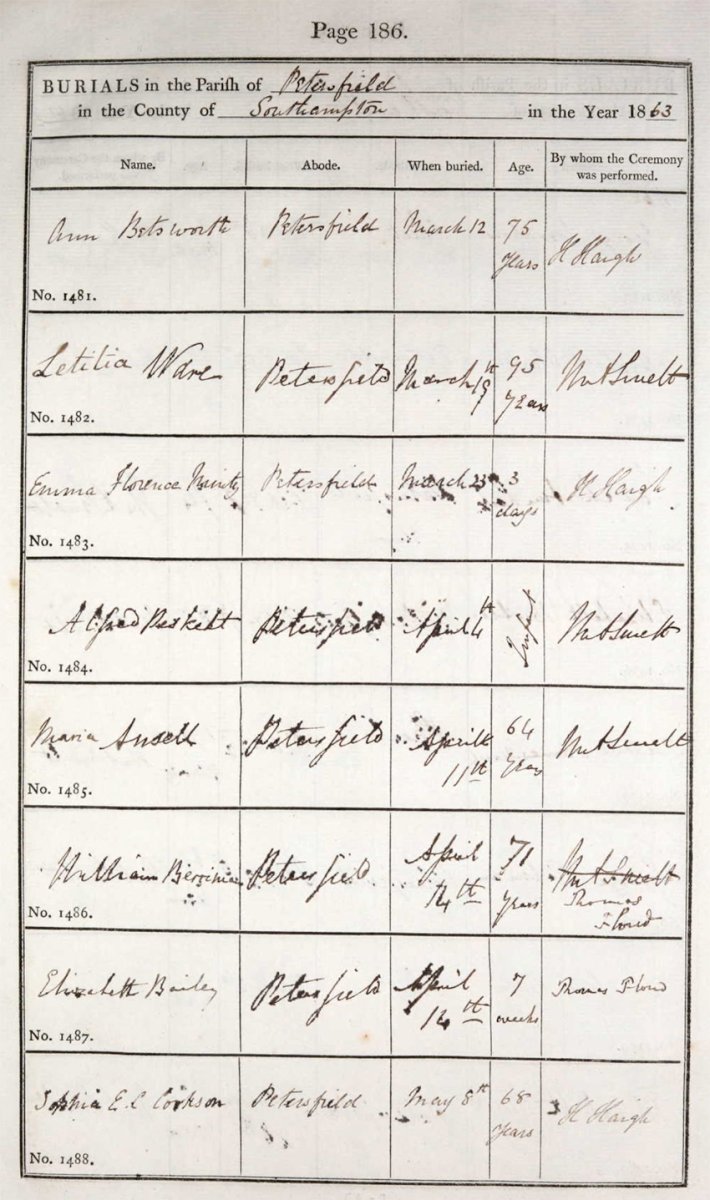 Page 186.
BURIALS in the Parish of Petersfield
in the County of Southampton in the Year 1863
Name. Abode. When buried. Age. By whom the Ceremony was performed.
Ann Betsworth Petersfield March 12 75 Years H Haigh
No. 1481.
Letitia Ware Petersfield March 19th 95 Years
No. 1482.
Emma Florence Petersfield March 23 3 days H Haigh
No. 1483.
Alfred Peskett Petersfield April 4th Infant
No. 1484.
Maria Ansell Petersfield April 11th 64 Years
No. 1485.
William Petersfield April 14th 71 Years Thomas Floud
No. 1486.
Elizabeth Bailey Petersfield April 14th 7 weeks Thomas Floud
No. 1487.
Sophia E. C Cookson Petersfield May 8th 68 Years H Haigh
No. 1488.